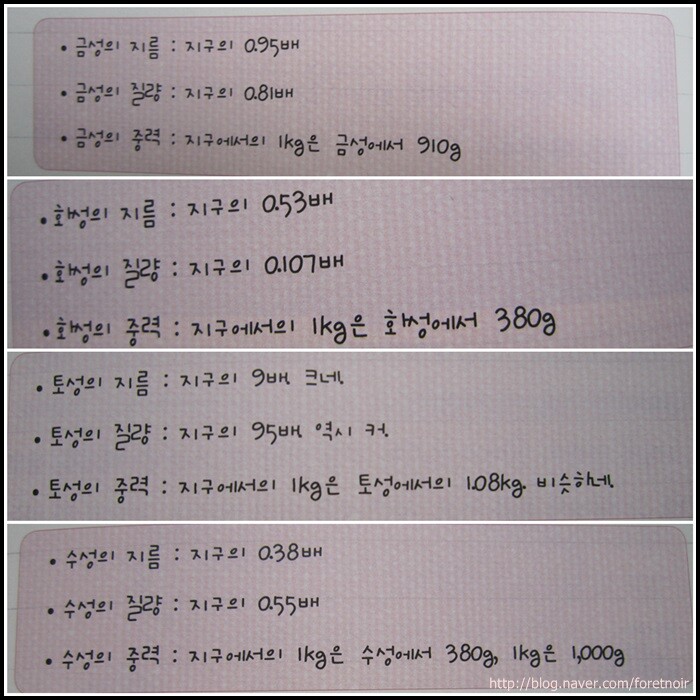 • 금성의 지름 : 지구의 0.95배
• 금성의 질량 : 지구의 0.81배
• 금성의 중력 : 지구에서의 1kg은 금성에서 910g
• 화성의 지름 : 지구의 0.53배
• 화성의 질량 : 지구의 0.107배
• 화성의 중력 : 지구에서의 1kg은 화성에서 380g
• 토성의 지름 : 지구의 9배 크네.
• 토성의 질량 : 지구의 95배 역시 커.
• 토성의 중력 : 지구에서의 1kg은 토성에서의 1.08kg. 비슷하네.
• 수성의 지름 : 지구의 0.38배
• 수성의 질량 : 지구의 0.55배
• 수성의 중력 : 지구에서의 1kg은 수성에서 380g, 1kg은 1,000g
http://blog.naver.com/foretnoir